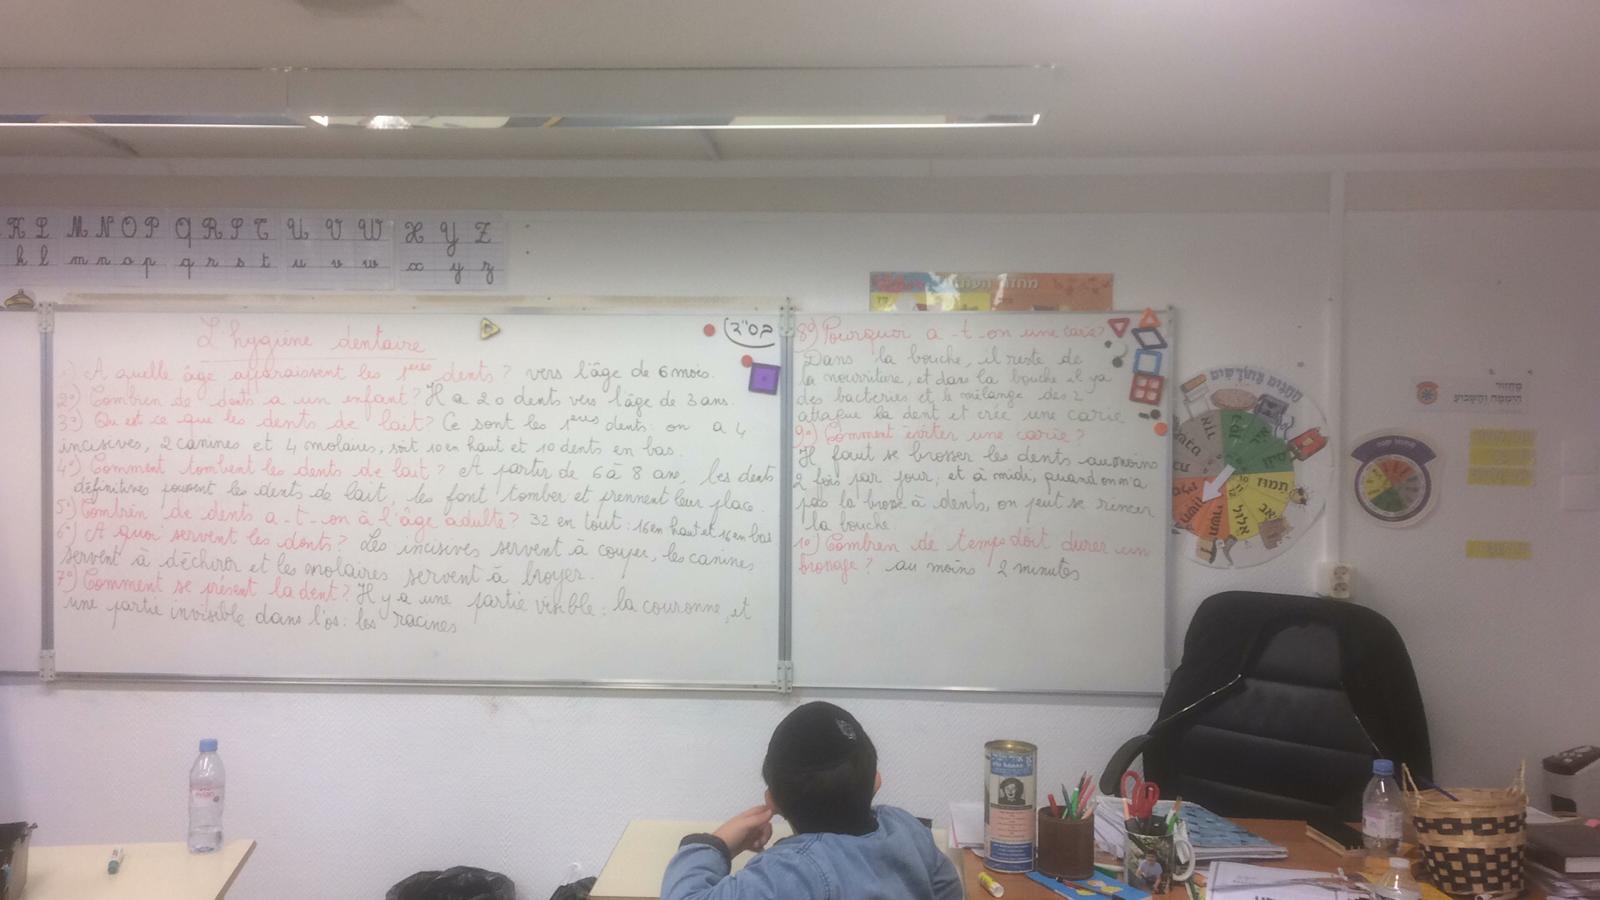 K L M N O P Q R S T U V W X Y Z
k l m n o p q r s t u v w x y z
מחזור
L'hygiène dentaire
בס"ד
1°) A quelle âge apparaissent les 1ères dents ? vers l'âge de 6 mois.
2°) Combien de dents a un enfant ? Il a 20 dents vers l'âge de 3 ans.
3°) Qu'est ce que les dents de lait ? Ce sont les 1ères dents : on a 4
incisives, 2 canines et 4 molaires, soit 10 en haut et 10 dents en bas.
4°) Comment tombent les dents de lait ? A partir de 6 à 8 ans, les dents
définitives poussent les dents de lait, les font tomber et prennent leur place.
5°) Combien de dents a-t-on à l'âge adulte ? 32 en tout : 16 en haut et 16 en bas
6°) A quoi servent les dents ? Les incisives servent à couper, les canines
servent à déchirer et les molaires servent à broyer.
7°) Comment se présent la dent ? Il y a une partie visible : la couronne, et
une partie invisible dans l'os : les racines
8°) Pourquoi a-t-on une carie ?
Dans la bouche, il reste de
la nourriture, et dans la bouche il y a
des bacteries et le mélange des 2
attaque la dent et crée une carie
9°) Comment éviter une carie ?
Il faut se brosser les dents au moins
2 fois par jour, et à midi, quand on n'a
pas la brosse à dents, on peut se rincer
la bouche
10°) Combien de temps doit durer un
brossage ? au moins 2 minutes
תמוז
אב
אלול
מחזור
היממה והשבוע